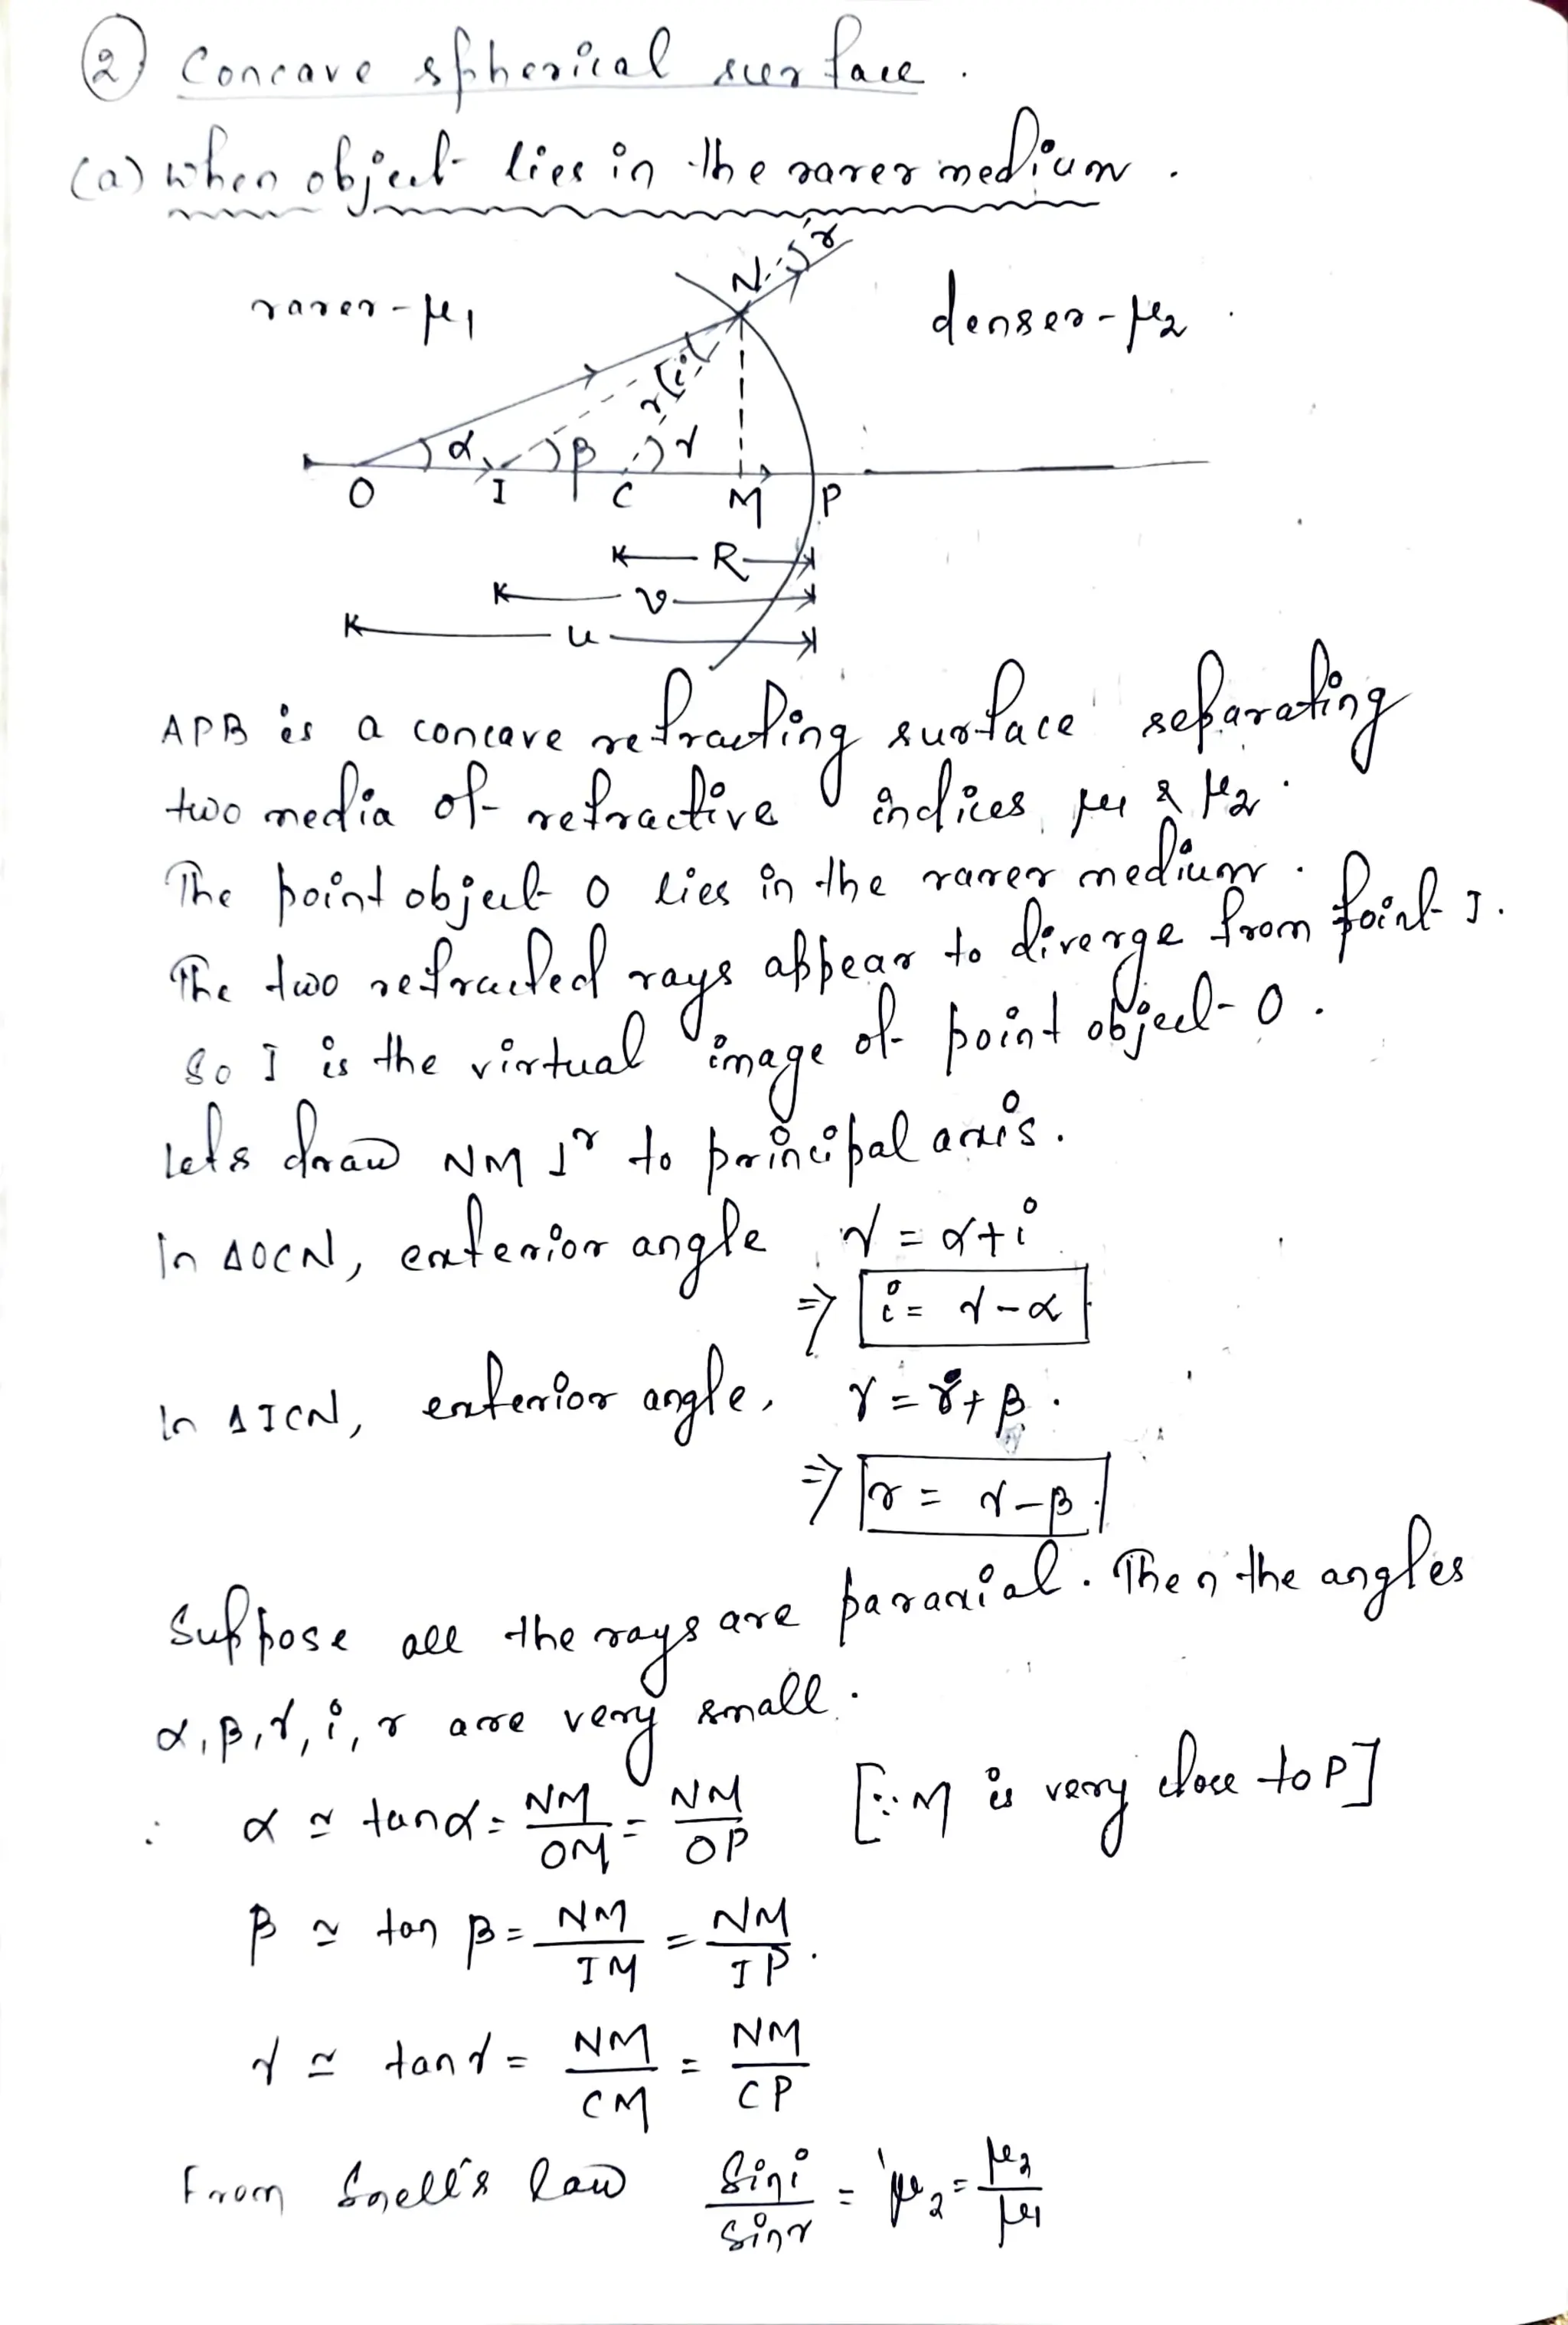 ② Concave spherical surface.
(a) when object lies in the rarer medium.
N r
rarer - μ₁ denser - μ₂.
i
r
α β γ
O I C M P
R
v
u
APB is a concave refracting surface separating
two media of refractive indices μ₁ & μ₂.
The point object O lies in the rarer medium.
The two refracted rays appear to diverge from point I.
So I is the virtual image of point object O.
Lets draw NM ⊥ʳ to principal axis.
In ΔOCN, exterior angle γ = α + i
⇒ i = γ - α
In ΔICN, exterior angle, γ = r + β.
⇒ r = γ - β.
Suppose all the rays are paraxial. Then the angles
α, β, γ, i, r are very small.
∴ α ≃ tan α = NM/OM = NM/OP [∵ M is very close to P]
β ≃ tan β = NM/IM = NM/IP.
γ ≃ tan γ = NM/CM = NM/CP
From Snell's law sin i/sin r = ¹μ₂ = μ₂/μ₁